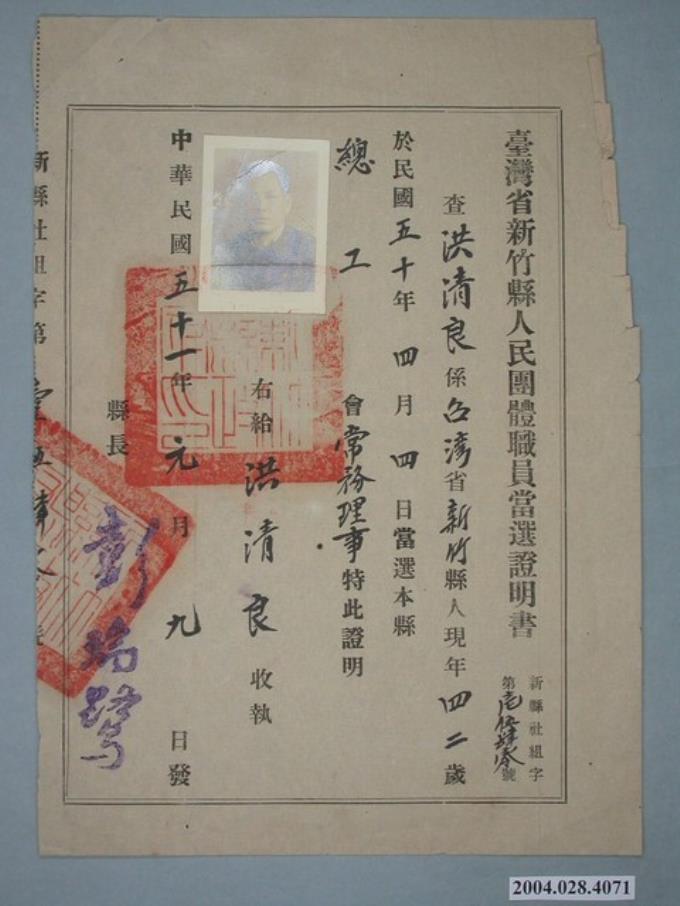 臺灣省新竹縣人民團體職員當選證明書
新縣社組字
第壱伍肆叁號
查洪清良係台湾省新竹縣人現年四二歲
於民國五十年四月四日當選本縣
總工會常務理事特此證明
右給洪清良收執
中華民國五十一年元月九日發
縣長彭瑞鷺
新縣社組字第
2004.028.4071